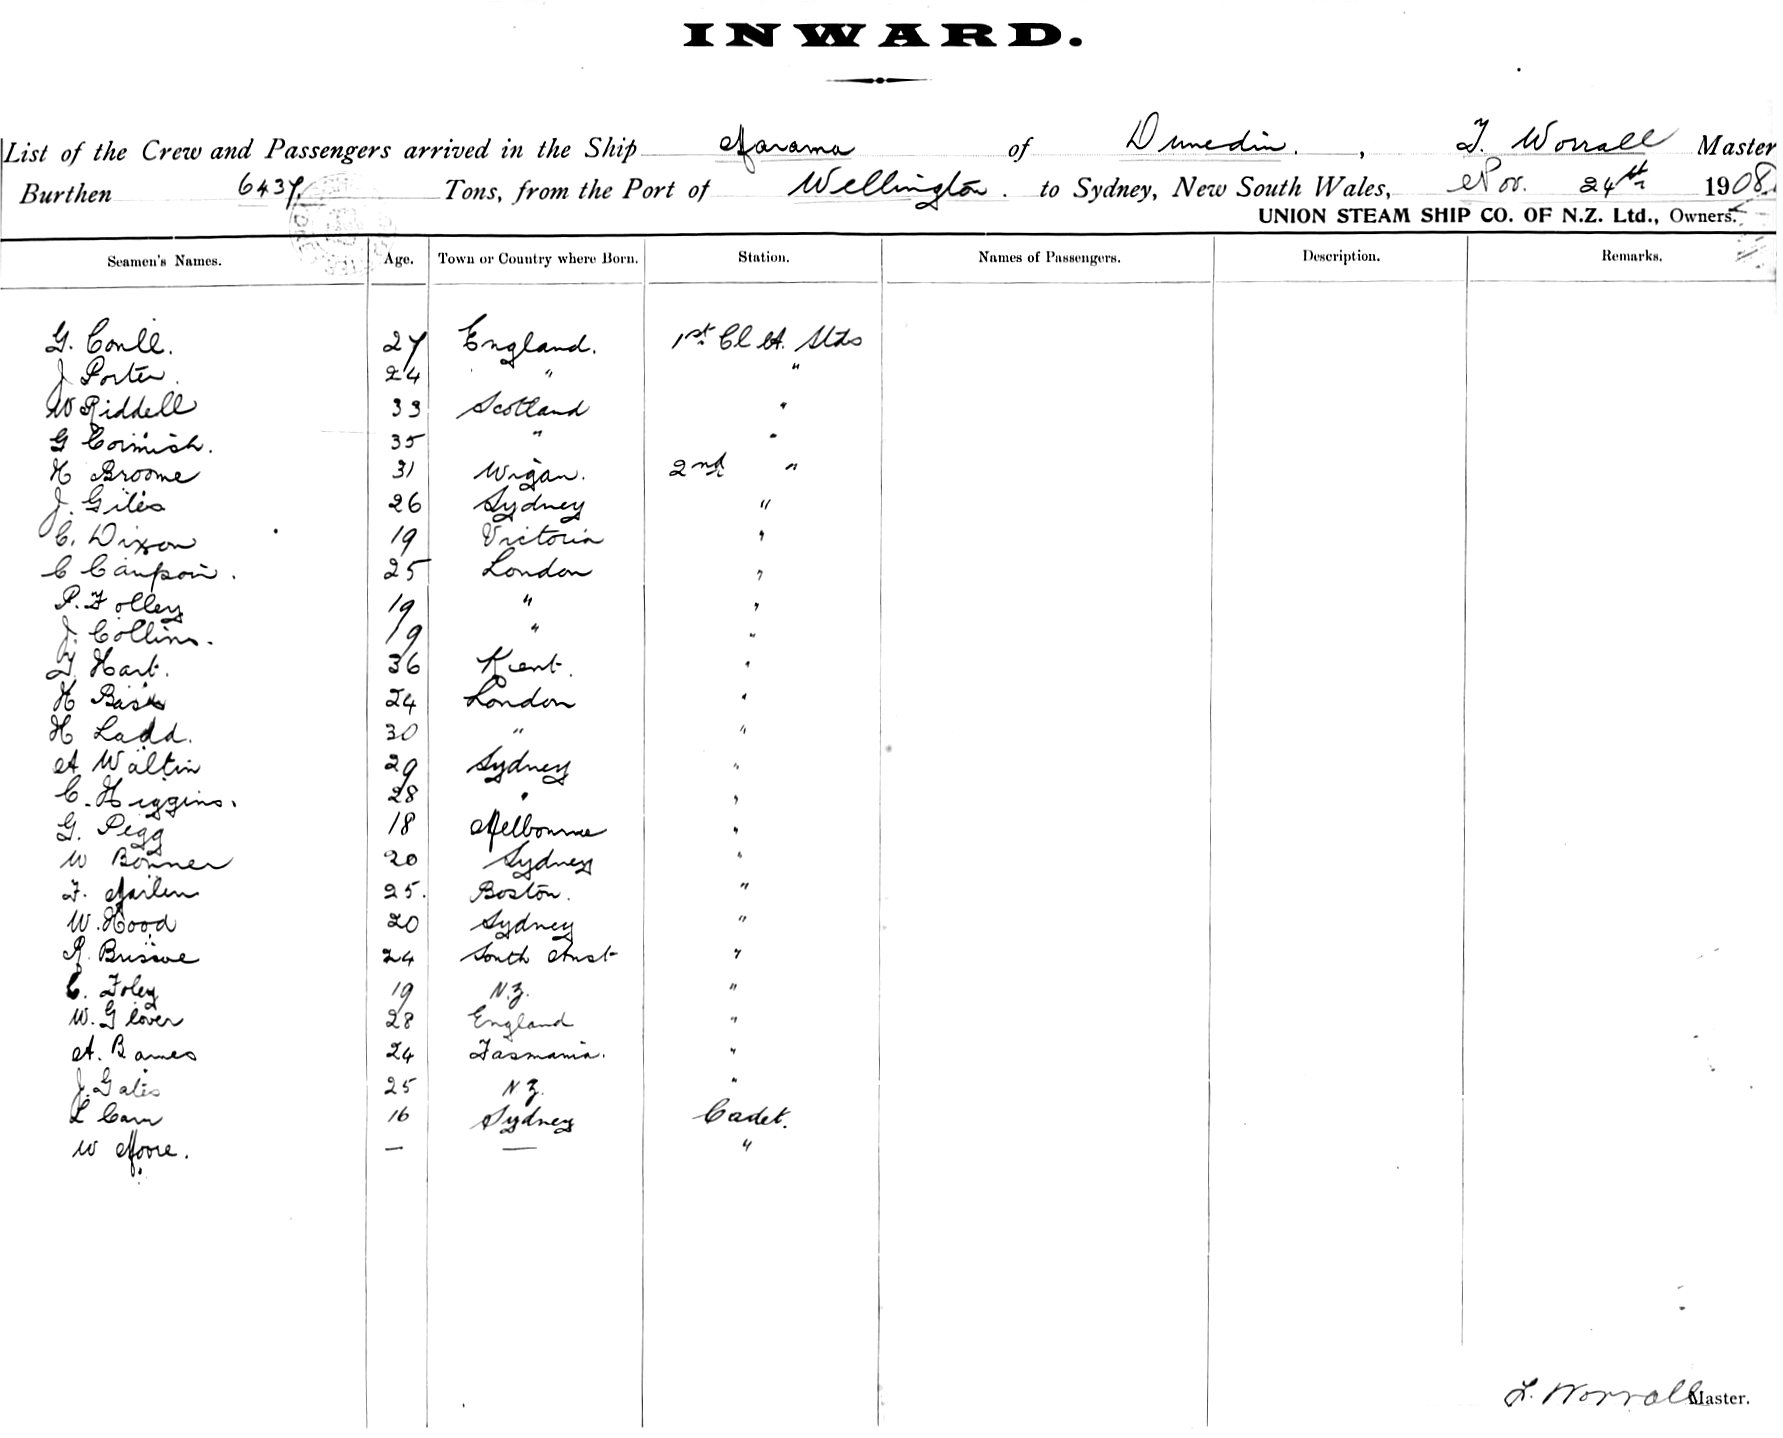 INWARD.
List of the Crew and Passengers arrived in the Ship Marama of Dunedin. , T. Worrall Master
Burthen 6437. Tons, from the Port of Wellington. to Sydney, New South Wales, Nov. 24th 1908
UNION STEAM SHIP CO. OF N.Z. Ltd., Owners.
Seamen's Names. Age. Town or Country where Born. Station. Names of Passengers. Description. Remarks.
G. 27 England. 1st Cl
J Porter. 24 " "
W Riddell 33 Scotland "
G Cormish. 35 " "
H Broome 31 Wigan. 2nd "
J. Giles 26 Sydney "
C. Dixon 19 Victoria "
C 25 London "
P. Folley 19 " "
J. Collins. 19 " "
T Hart. 36 Kent. "
H 24 London "
H Ladd. 30 " "
A Waltin 29 Sydney "
C. Higgins. 28 " "
G. Pegg 18 Melbourne "
W Bonner 20 Sydney "
F. 25. Boston. "
W. Hood 20 Sydney "
R. Briscoe 24 South Aust "
C. Foley 19 N.Z. "
W. Glover 28 England "
A. Barnes 24 Tasmania. "
J. Gates 25 NZ. "
L Carr 16 Sydney Cadet.
W Moore. — — "
T. Worrall Master.